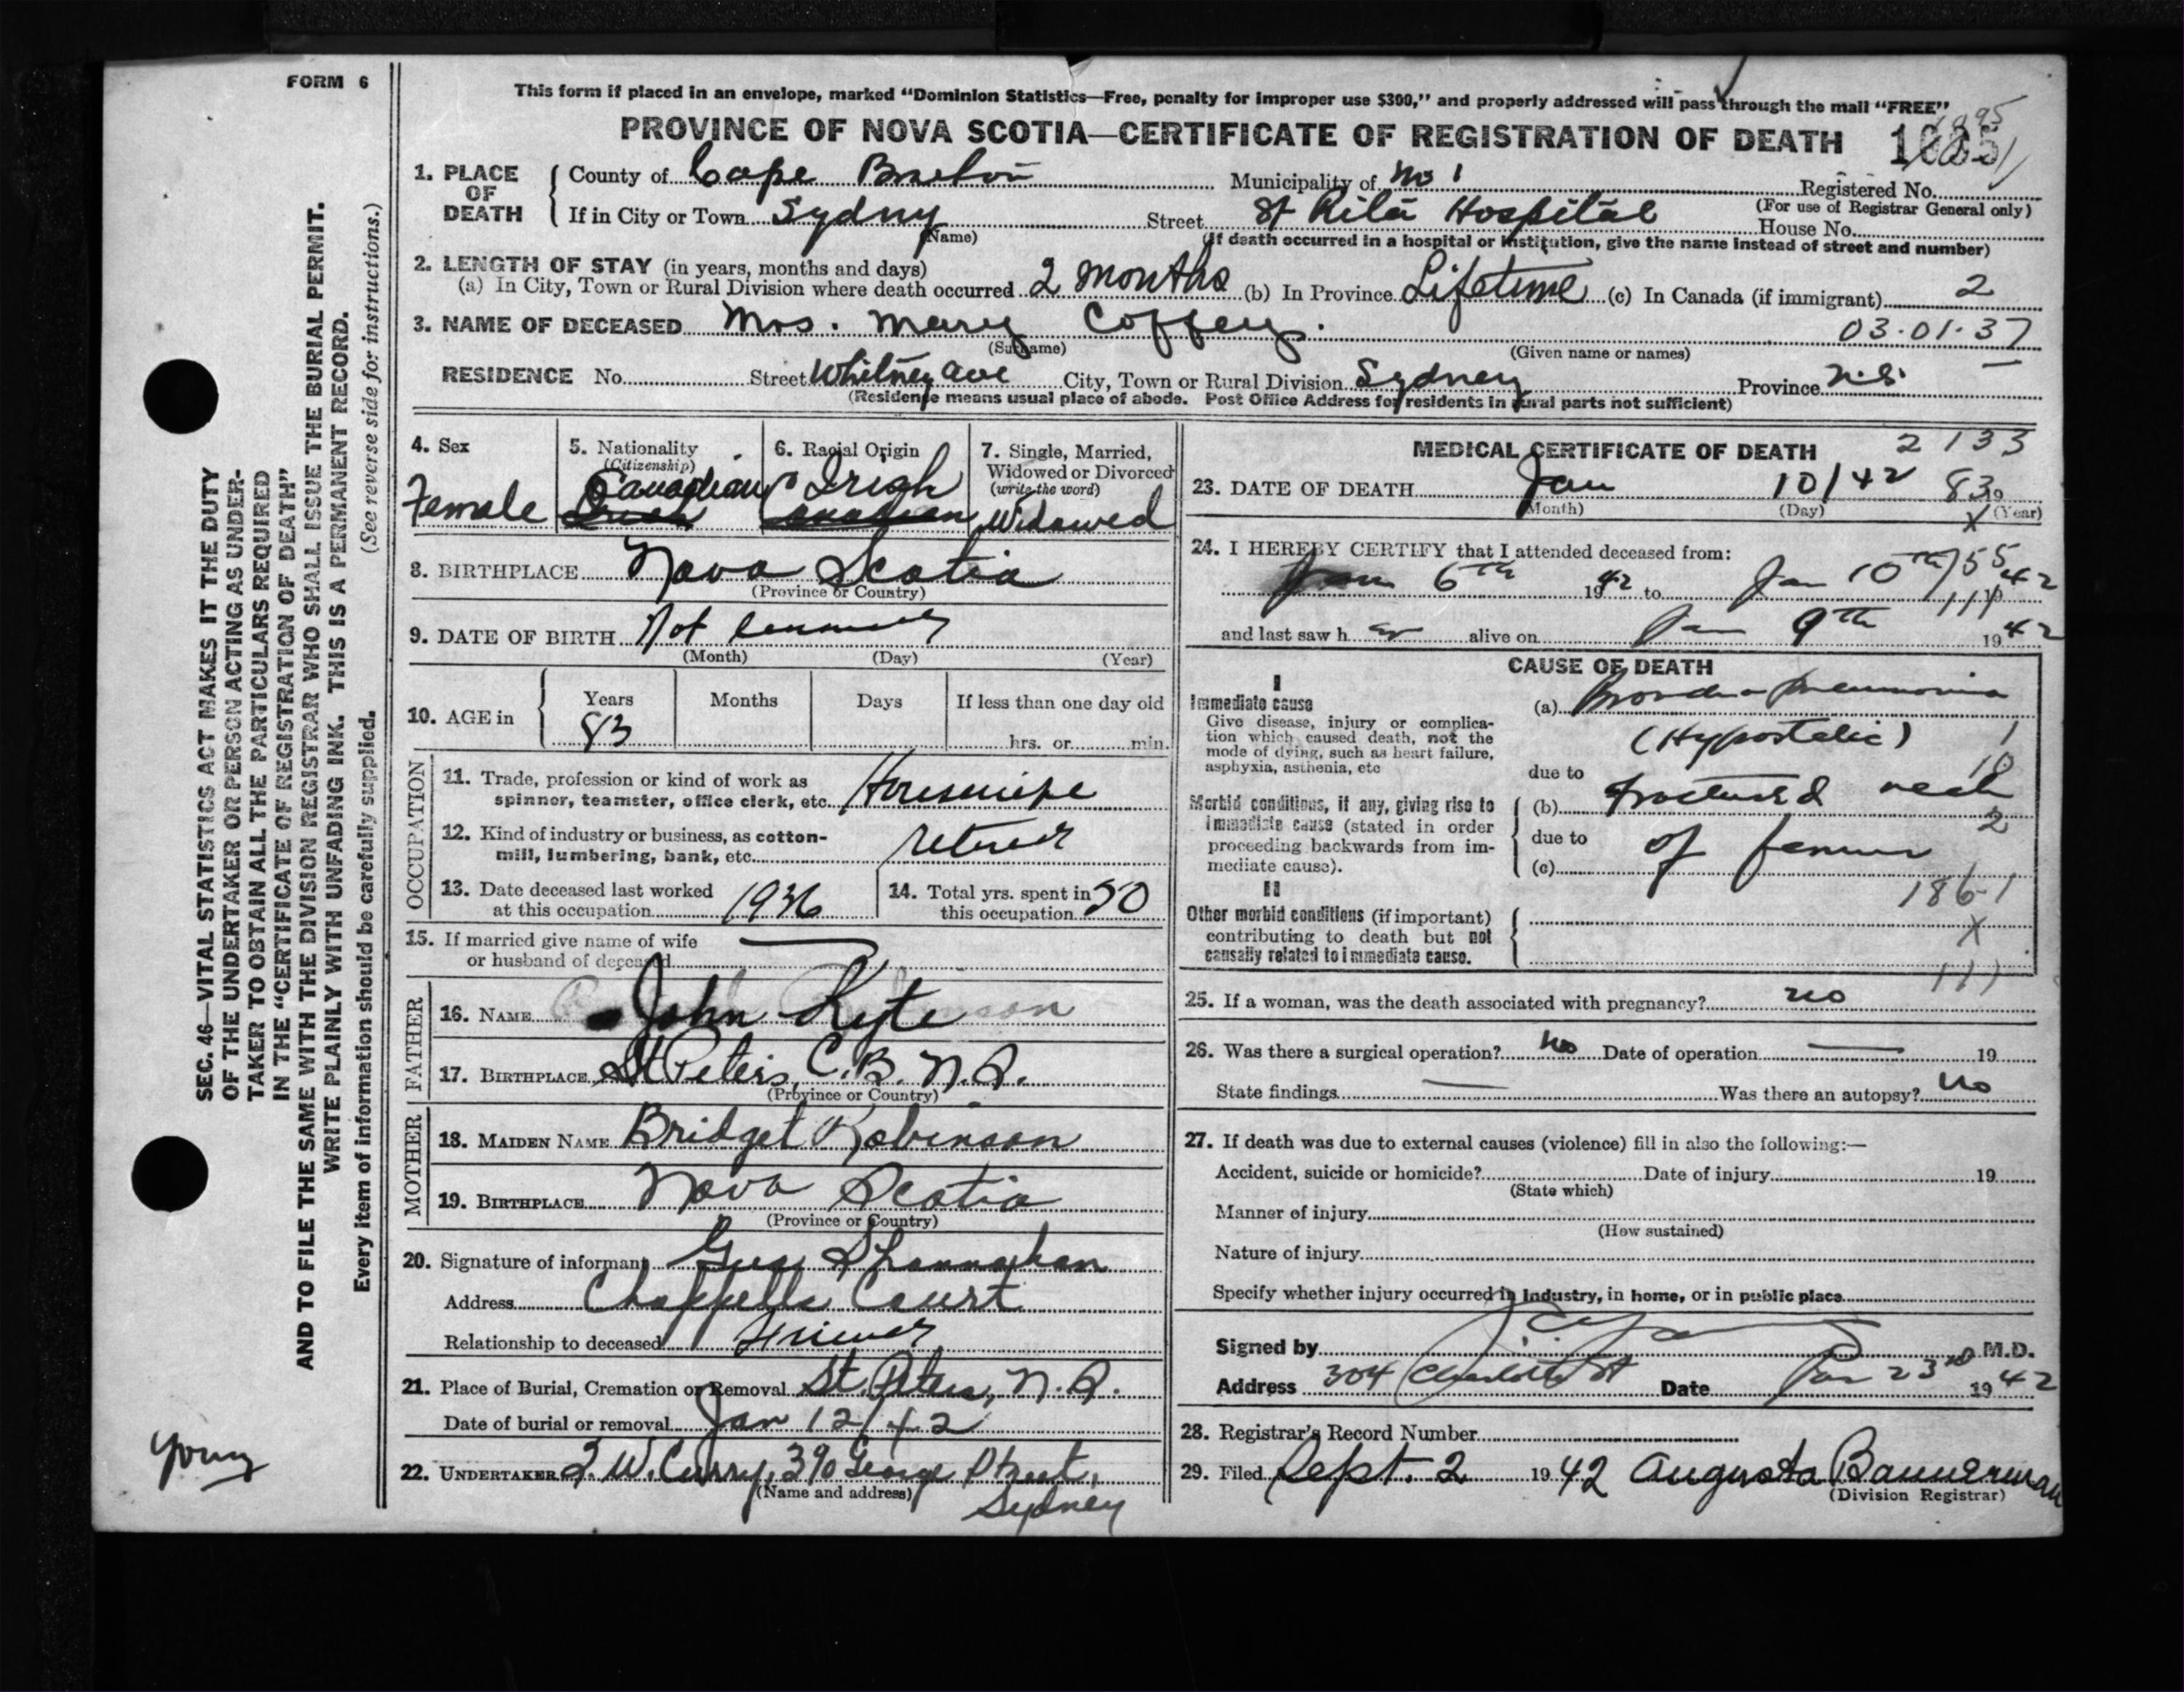 FORM 6
This form if placed in an envelope, marked "Dominion Statistics—Free, penalty for improper use $300," and properly addressed will pass through the mail "FREE"
PROVINCE OF NOVA SCOTIA—CERTIFICATE OF REGISTRATION OF DEATH
1. PLACE OF DEATH
County of Cape Breton Municipality of No 1 Registered No.
(For use of Registrar General only)
If in City or Town Sydney Street St Rita Hospital House No.
(Name) (If death occurred in a hospital or institution, give the name instead of street and number)
2. LENGTH OF STAY (in years, months and days)
(a) In City, Town or Rural Division where death occurred 2 months (b) In Province Lifetime (c) In Canada (if immigrant) 2
3. NAME OF DECEASED Mrs. Mary Coffey. 03.01.37
(Surname) (Given name or names)
RESIDENCE No. Street Whitney Ave City, Town or Rural Division Sydney Province N.S.
(Residence means usual place of abode. Post Office Address for residents in rural parts not sufficient)
4. Sex
Female
5. Nationality
(Citizenship)
Canadian
Irish
6. Racial Origin
Irish
Canadian
7. Single, Married,
Widowed or Divorced
(write the word)
Widowed
8. BIRTHPLACE Nova Scotia
(Province or Country)
9. DATE OF BIRTH Not
(Month) (Day) (Year)
10. AGE in
Years Months Days If less than one day old
83 hrs. or min.
OCCUPATION
11. Trade, profession or kind of work as
spinner, teamster, office clerk, etc. Housewife
12. Kind of industry or business, as cotton-
mill, lumbering, bank, etc. retired
13. Date deceased last worked
at this occupation 1936
14. Total yrs. spent in
this occupation 50
15. If married give name of wife
or husband of deceased —
FATHER
16. NAME John Kyte
17. BIRTHPLACE St Peters, C.B. N.S.
(Province or Country)
MOTHER
18. MAIDEN NAME Bridget Robinson
19. BIRTHPLACE Nova Scotia
(Province or Country)
20. Signature of informant Gus Shannahan
Address Chappells Court
Relationship to deceased
21. Place of Burial, Cremation or Removal St. Peters, N.S.
Date of burial or removal Jan 12/42
22. UNDERTAKER W. Curry, 390 George Street,
(Name and address) Sydney
MEDICAL CERTIFICATE OF DEATH 2133
23. DATE OF DEATH Jan 10/42 83
(Month) (Day) 19 (Year)
X
24. I HEREBY CERTIFY that I attended deceased from:
Jan 6th 1942 to Jan 10th 1942
and last saw her alive on Jan 9th 1942
CAUSE OF DEATH
I
Immediate cause
Give disease, injury or complica-
tion which caused death, not the
mode of dying, such as heart failure,
asphyxia, asthenia, etc
(a) Broncho pneumonia
(Hypostatic) 1
10
due to
Morbid conditions, if any, giving rise to
immediate cause (stated in order
proceeding backwards from im-
mediate cause).
(b) Fractured neck
2
due to
of femur
(c)
186-1
II
Other morbid conditions (if important)
contributing to death but not
causally related to immediate cause.
X
111
25. If a woman, was the death associated with pregnancy? no
26. Was there a surgical operation? No Date of operation — 19
State findings — Was there an autopsy? No
27. If death was due to external causes (violence) fill in also the following:—
Accident, suicide or homicide? Date of injury 19
(State which)
Manner of injury
(How sustained)
Nature of injury
Specify whether injury occurred in industry, in home, or in public place
Signed by M.D.
Address 304 Charlotte St Date Jan 23rd 1942
28. Registrar's Record Number
29. Filed Sept. 2 1942 Augusta Bannerman
(Division Registrar)
SEC. 46—VITAL STATISTICS ACT MAKES IT THE DUTY
OF THE UNDERTAKER OR PERSON ACTING AS UNDER-
TAKER TO OBTAIN ALL THE PARTICULARS REQUIRED
IN THE "CERTIFICATE OF REGISTRATION OF DEATH"
AND TO FILE THE SAME WITH THE DIVISION REGISTRAR WHO SHALL ISSUE THE BURIAL PERMIT.
WRITE PLAINLY WITH UNFADING INK. THIS IS A PERMANENT RECORD.
Every item of information should be carefully supplied. (See reverse side for instructions.)
Young